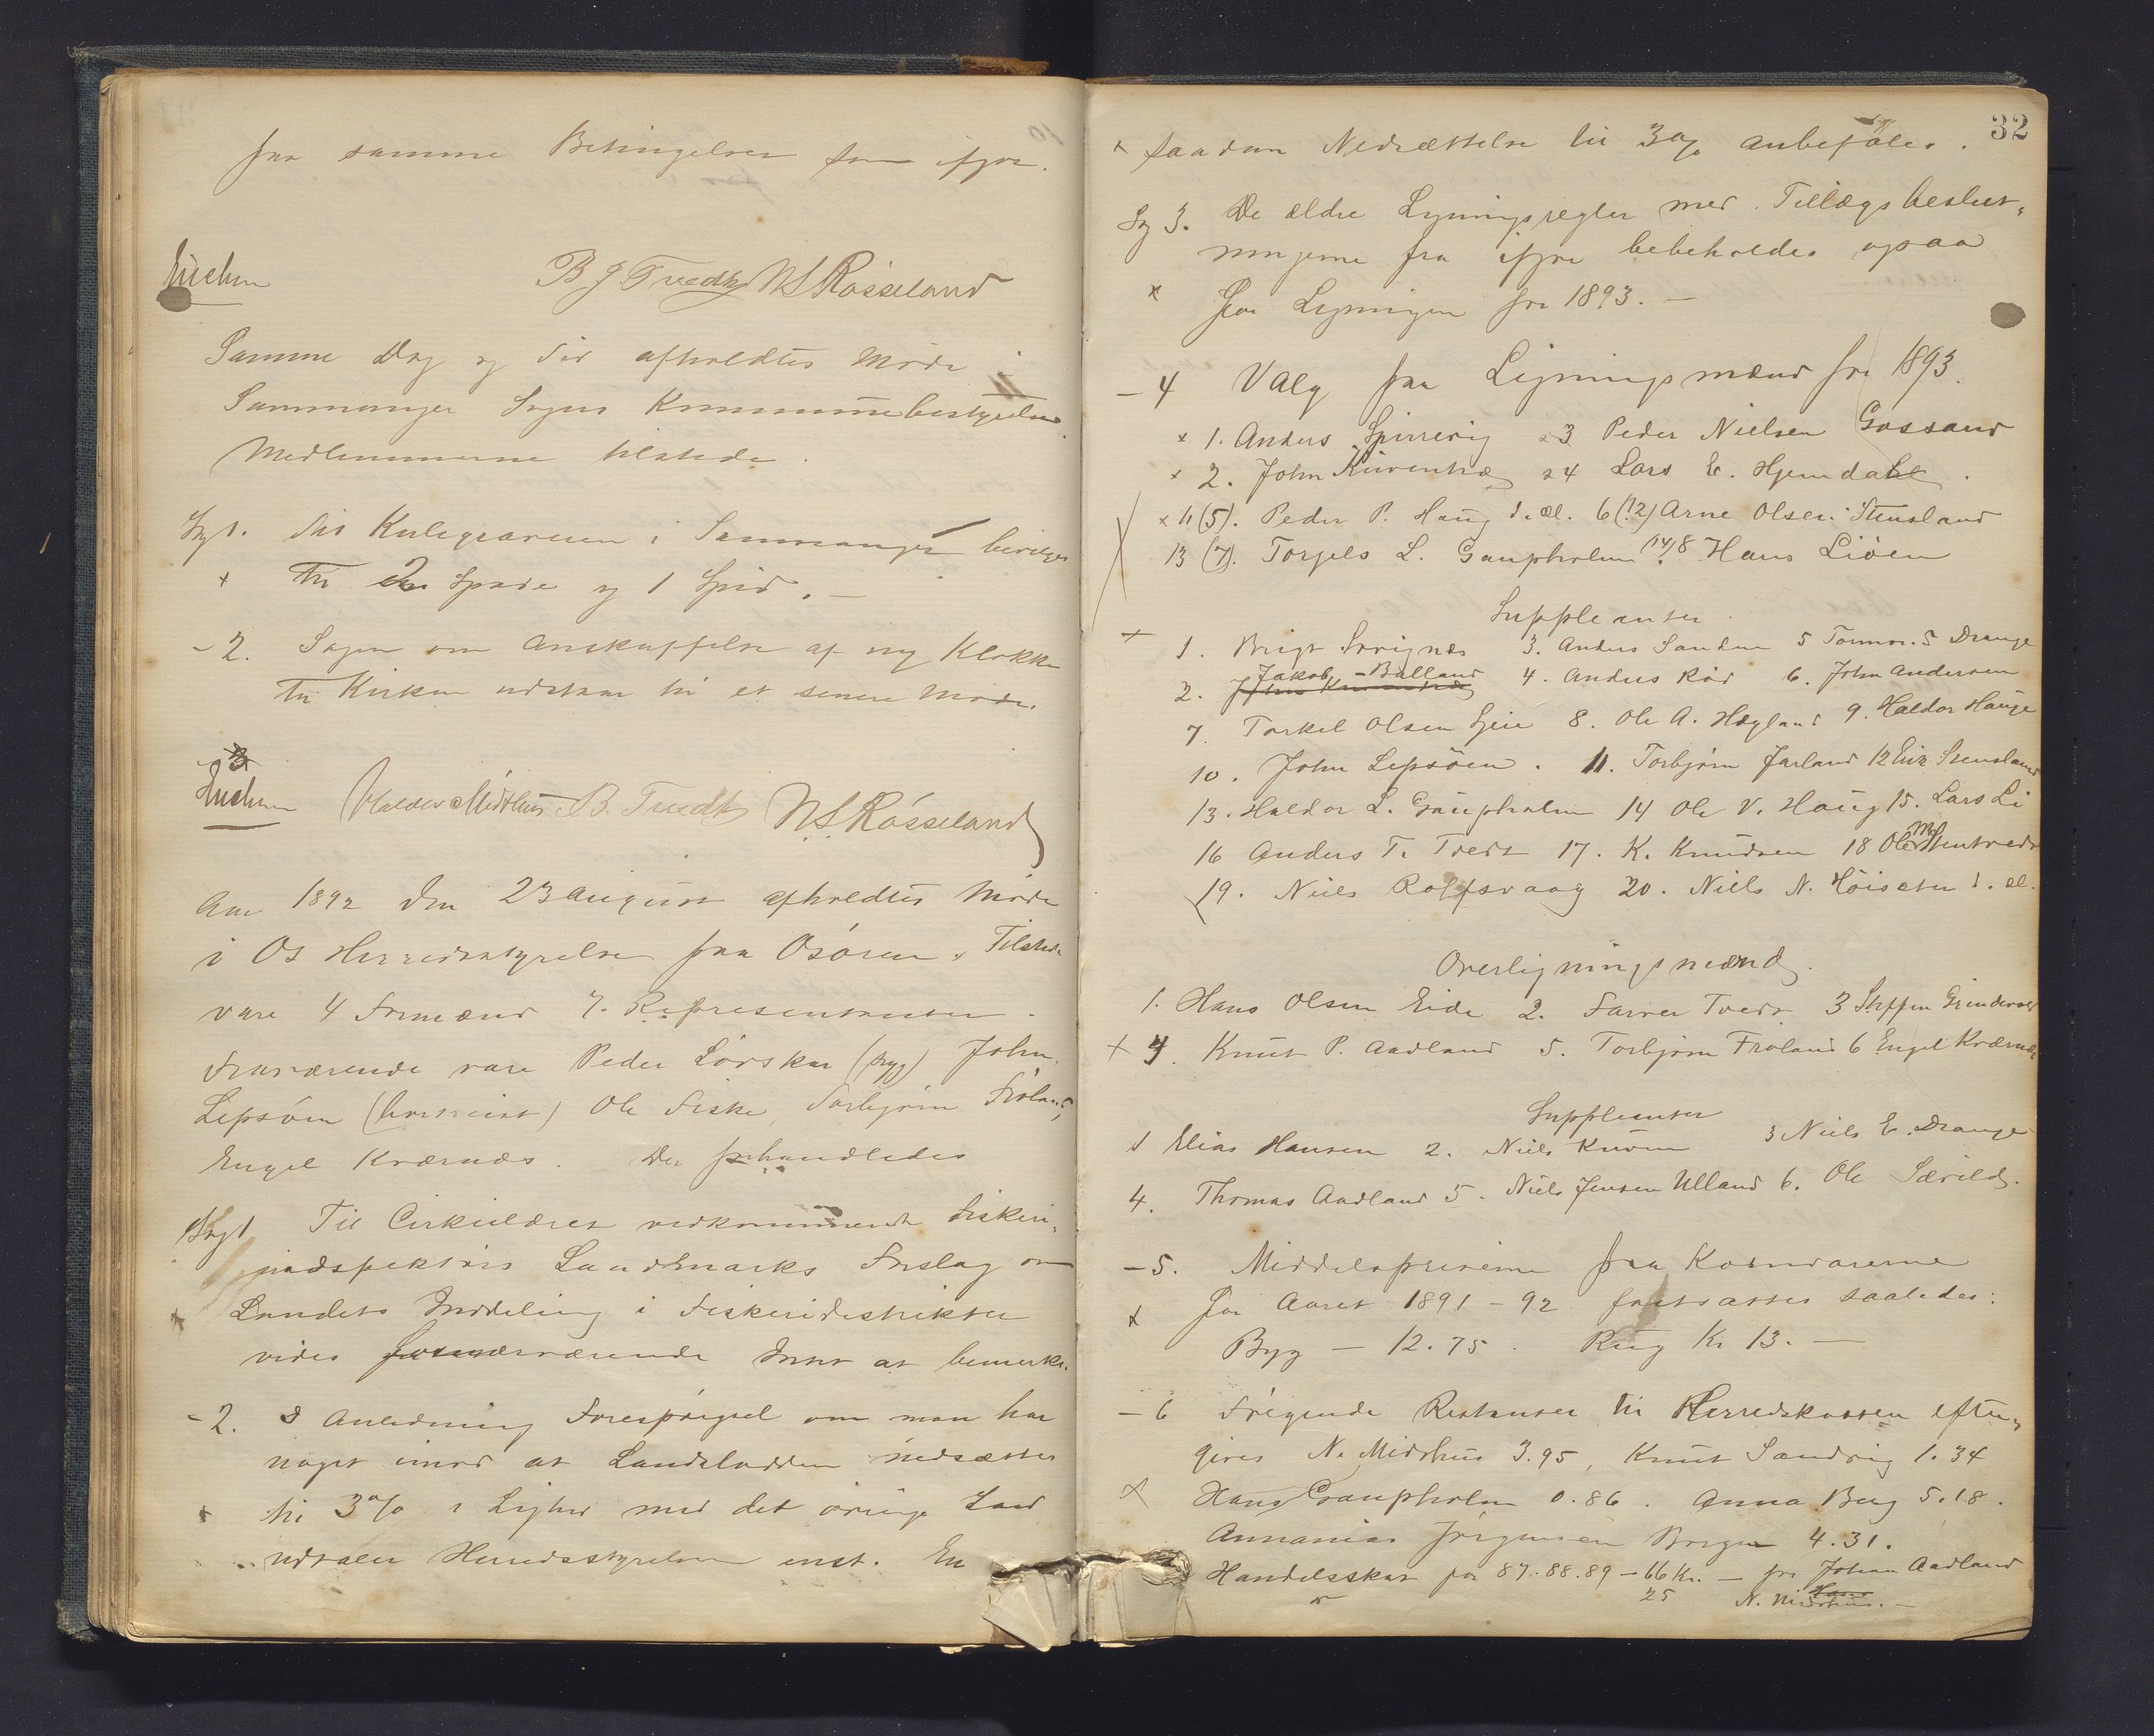 paa samme Betingelser som ifjor.
B J. Tvedt NS Røsseland
Samme Dag og Tid afholdtes Møde i
Samnanger Sogns Kommunebestyrelse
Medlemmerne tilstede.
Sag 1. Til Kulegraveren i Samnanger bevilges
+ til 2 Spade og 1 Spid. —
- 2. Sagen om Anskaffelse af ny Klokke
til Kirken udstaar til et senere Møde.
- 3
Haldor Midthus B. Tvedt NS Røsseland
Aar 1892 den 23 august afholdtes Møde
i Os Herredsstyrelse paa Osøren. Tilstede
vare 4 Formænd 7. Representanter.
Fraværende vare Peder Lørsker (syg) John
Lepsöen (bortreist) Ole Fiske, Torbjørn Frøland,
Engel Kværnæs. Der forhandledes
Sag 1 Til Cirkulæret vedkommende Fiskeri-
indspektørs Landmarks Forslag om
+ Landets Inddeling i Fiskeridistrikter
vides Intet at bemerke.
- 2. I Anledning Forespørgsel om man har
noget imod at Landslodden nedsættes
+ til 3 % i Lighed med det øvrige Land
udtaler Herredsstyrelsen enst. En
32
+ saadan Nedsættelse til 3 % anbefales.
Sag 3. De ældre Ligningsregler med Tillægsbeslut-
ningerne fra ifjor bebeholdes ogsaa
x for Ligningen for 1893. —
- 4 Valg paa Ligningsmænd for 1893.
x 1. Anders Spirrevig x 3 Peder Nielsen Gassand
x 2. John Kuventræ x 4 Lars E. Hjemdahl.
x 11 (5). Peder P. Haug d. æl. 6 (12) Arne Olsen Stensland
13 (7). Torgels L. Gaupholm (14) 8 Hans Liöen
Suppleanter
+ 1. Brigt Sørignæs 3. Anders Sanden 5 Tormo. S Drange
2. Jakob Balland 4. Anders Rød 6. John Andersen
7. Torkel Olsen Lyie 8. Ole A. Hægland 9. Haldor Hauge
10. John Lepsöen. 11. Torbjørn Jarland 12 Erik Stensland
13. Haldor L. Gaupholm 14 Ole V. Haug 15. Lars Li
16 Anders T. Tvedt 17. K. Knudsen 18 Ole M
19. Niels Rolfsvaag 20. Niels N. Höisæter d. æl.
Overligningsmænd.
1. Hans Olsen Eide 2. Farver Tvedt 3 Steffen Grindevold
+ 4. Knut P. Aadland 5. Torbjørn Frøland 6 Engel Kværnæs
Suppleanter
1 Elias Hansen 2. Niels Kuven 3 Niels E. Drange
4. Thomas Aadland 5. Niels Jensen Ulland 6. Ole Særvold.
- 5. Middelpriserne paa Kornvarerne
x for Aaret 1891 - 92 fastsattes saaledes:
Byg — 12.75. Rug Kr 13. —
- 6 Følgende Restanser til Herredskassen efter-
gives N. Midthus 3.95, Knut Sandvig 1.34
x Hans Gaupholm 0.86. Anna Berg 5.18.
Annanias Jørgensen Borgen 4.31.
Handelsskat for 87. 88. 89 — 66 Kr. — for Johan Aadland
25 N. Midthus. —